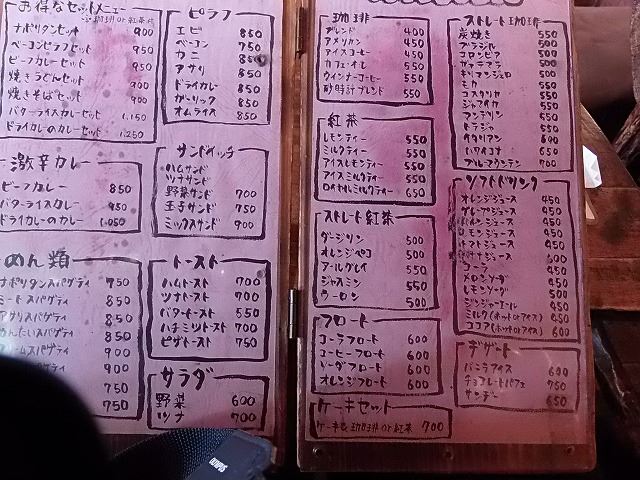 お得なセットメニュー
ナポリタンセット 900
ベーコンピラフセット 950
ビーフカレーセット 950
焼きうどんセット 900
焼きそばセット 900
バターライスカレーセット 1,150
ドライカレーのカレーセット 1,250
激辛カレー
ビーフカレー 850
バターライスカレー 950
ドライカレーのカレー 1,050
めん類
ナポリタンスパゲティ 750
ミートスパゲティ 850
アサリスパゲティ 850
めんたいスパゲティ 850
900
900
750
750
ピラフ
エビ 850
ベーコン 750
カニ 850
アサリ 850
ドライカレー 850
ガーリック 850
オムライス 850
サンドウィッチ
ハムサンド
ツナサンド
野菜サンド 700
玉子サンド 750
ミックスサンド 900
トースト
ハムトースト 700
ツナトースト 700
バタートースト 550
ハチミツトースト 700
ピザトースト 750
サラダ
野菜 600
ツナ 700
珈琲
ブレンド 400
アメリカン 450
アイスコーヒー 450
カフェ・オ・レ 500
ウインナーコーヒー 550
砂時計ブレンド 550
紅茶
レモンティー 550
ミルクティー 550
アイスレモンティー 550
アイスミルクティー 550
ロイヤルミルクティー 650
ストレート紅茶
ダージリン 500
オレンジペコ 500
アールグレイ 550
ジャスミン 550
ウーロン 500
フロート
コーラフロート 600
コーヒーフロート 600
ソーダフロート 600
オレンジフロート 600
ケーキセット
ケーキ& 珈琲 or 紅茶 700
ストレート珈琲
炭焼き 550
ブラジル 500
コロンビア 500
ガテマラ 500
キリマンジャロ 550
モカ 550
コスタリカ 550
ジャマイカ 550
マンデリン 550
トラジャ 550
イタリアン 550
ハワイコナ 650
ブルーマウンテン 700
ソフトドリンク
オレンジジュース 450
グレープジュース 450
パインジュース 450
レモンジュース 450
トマトジュース 450
ジュース 500
コーラ 450
メロンソーダ 450
レモンソーダ 500
ジンジャーエール 450
ミルク(ホットorアイス) 450
ココア(ホットorアイス) 600
デザート
バニラアイス 600
チョコレートパフェ 750
サンデー 650
OLYMPUS